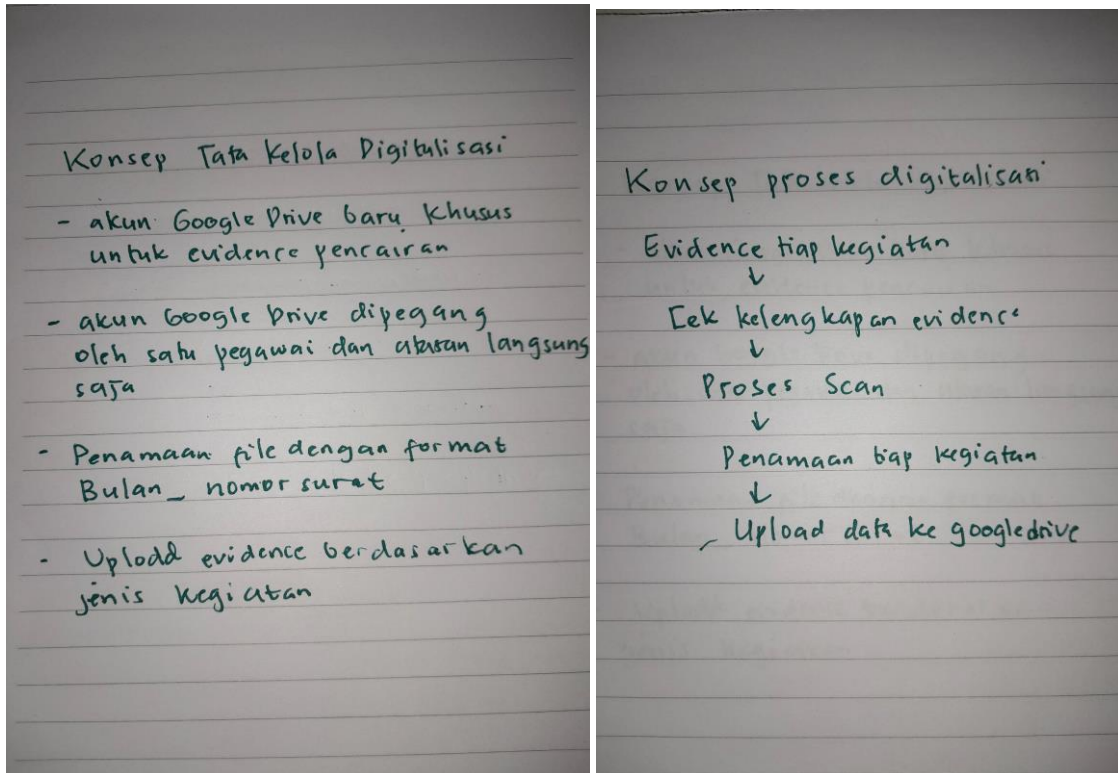 Konsep Tata Kelola Digitalisasi
- akun Google Drive baru khusus
untuk evidence pencairan
- akun Google Drive dipegang
oleh satu pegawai dan atasan langsung
saja
- Penamaan file dengan format
Bulan_ nomor surat
- Upload evidence berdasarkan
jenis kegiatan
Konsep proses digitalisasi
Evidence tiap kegiatan
↓
Cek kelengkapan evidence
↓
Proses Scan
↓
Penamaan tiap kegiatan
↓
Upload data ke googledrive